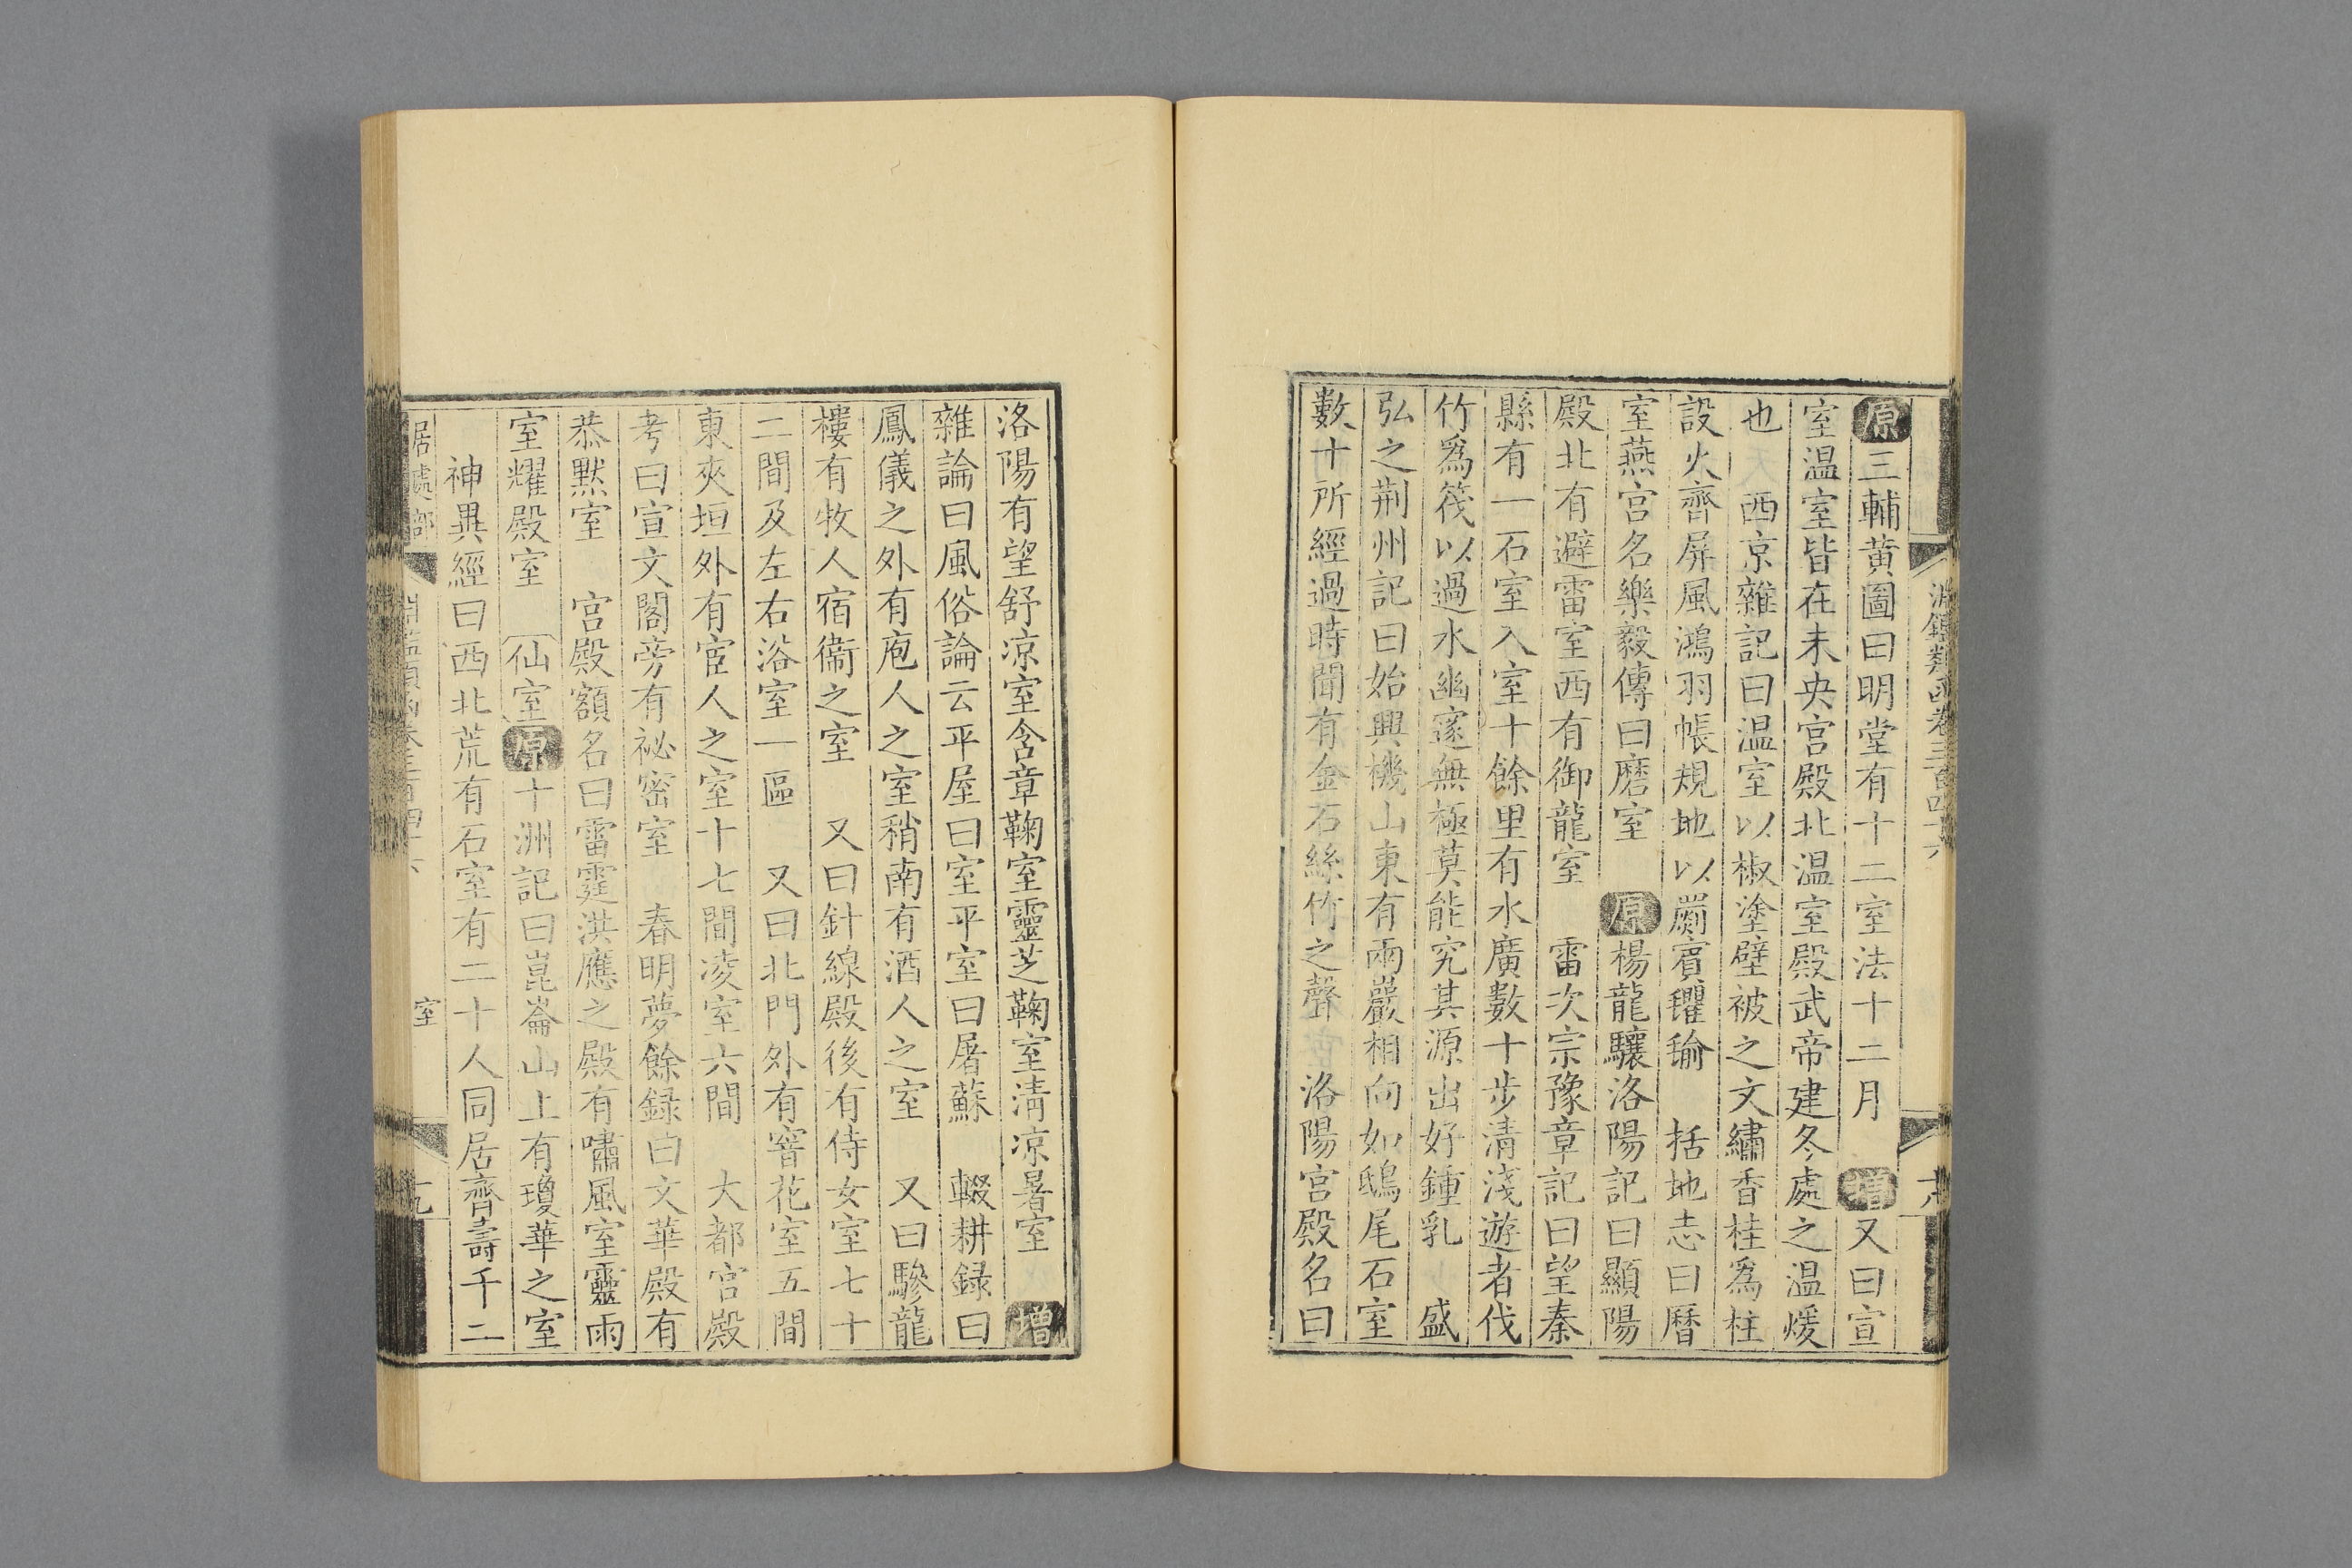 原三輔黄圖曰明堂有十二室法十二月 增又曰宣
室温室皆在未央宫殿北温室殿武帝建冬處之温煖
也 西京雜記曰温室以椒塗壁被之文繡香桂爲柱
設火齊屏風鴻羽帳規地以罽賓氍毹 括地志曰曆
室燕宫名樂毅傳曰磨室 原楊龍驤洛陽記曰顯陽
殿北有避雷室西有御龍室 雷次宗豫章記曰望秦
縣有一石室入室十餘里有水廣數十步清淺遊者伐
竹爲筏以過水幽邃無極莫能究其源出好鍾乳 盛
弘之荆州記曰始興機山東有兩巖相向如鴟尾石室
數十所經過時聞有金石絲竹之聲 洛陽宫殿名曰
洛陽有望舒凉室含章鞠室靈芝鞠室清凉暑室 增
雜論曰風俗論云平屋曰室平室曰屠蘇 輟耕録曰
鳳儀之外有庖人之室稍南有酒人之室 又曰驂龍
樓有牧人宿衞之室 又曰針線殿後有侍女室七十
二間及左右浴室一區 又曰北門外有窨花室五間
東夾垣外有宦人之室十七間凌室六間 大都宫殿
考曰宣文閣旁有祕密室 春明夢餘録曰文華殿有
恭默室 宫殿額名曰雷霆洪應之殿有嘯風室靈雨
室耀殿室 仙室原十洲記曰崑崙山上有瓊華之室
神異經曰西北荒有石室有二十人同居齊壽千二
居處部 淵鑑類函卷三百四十六 室